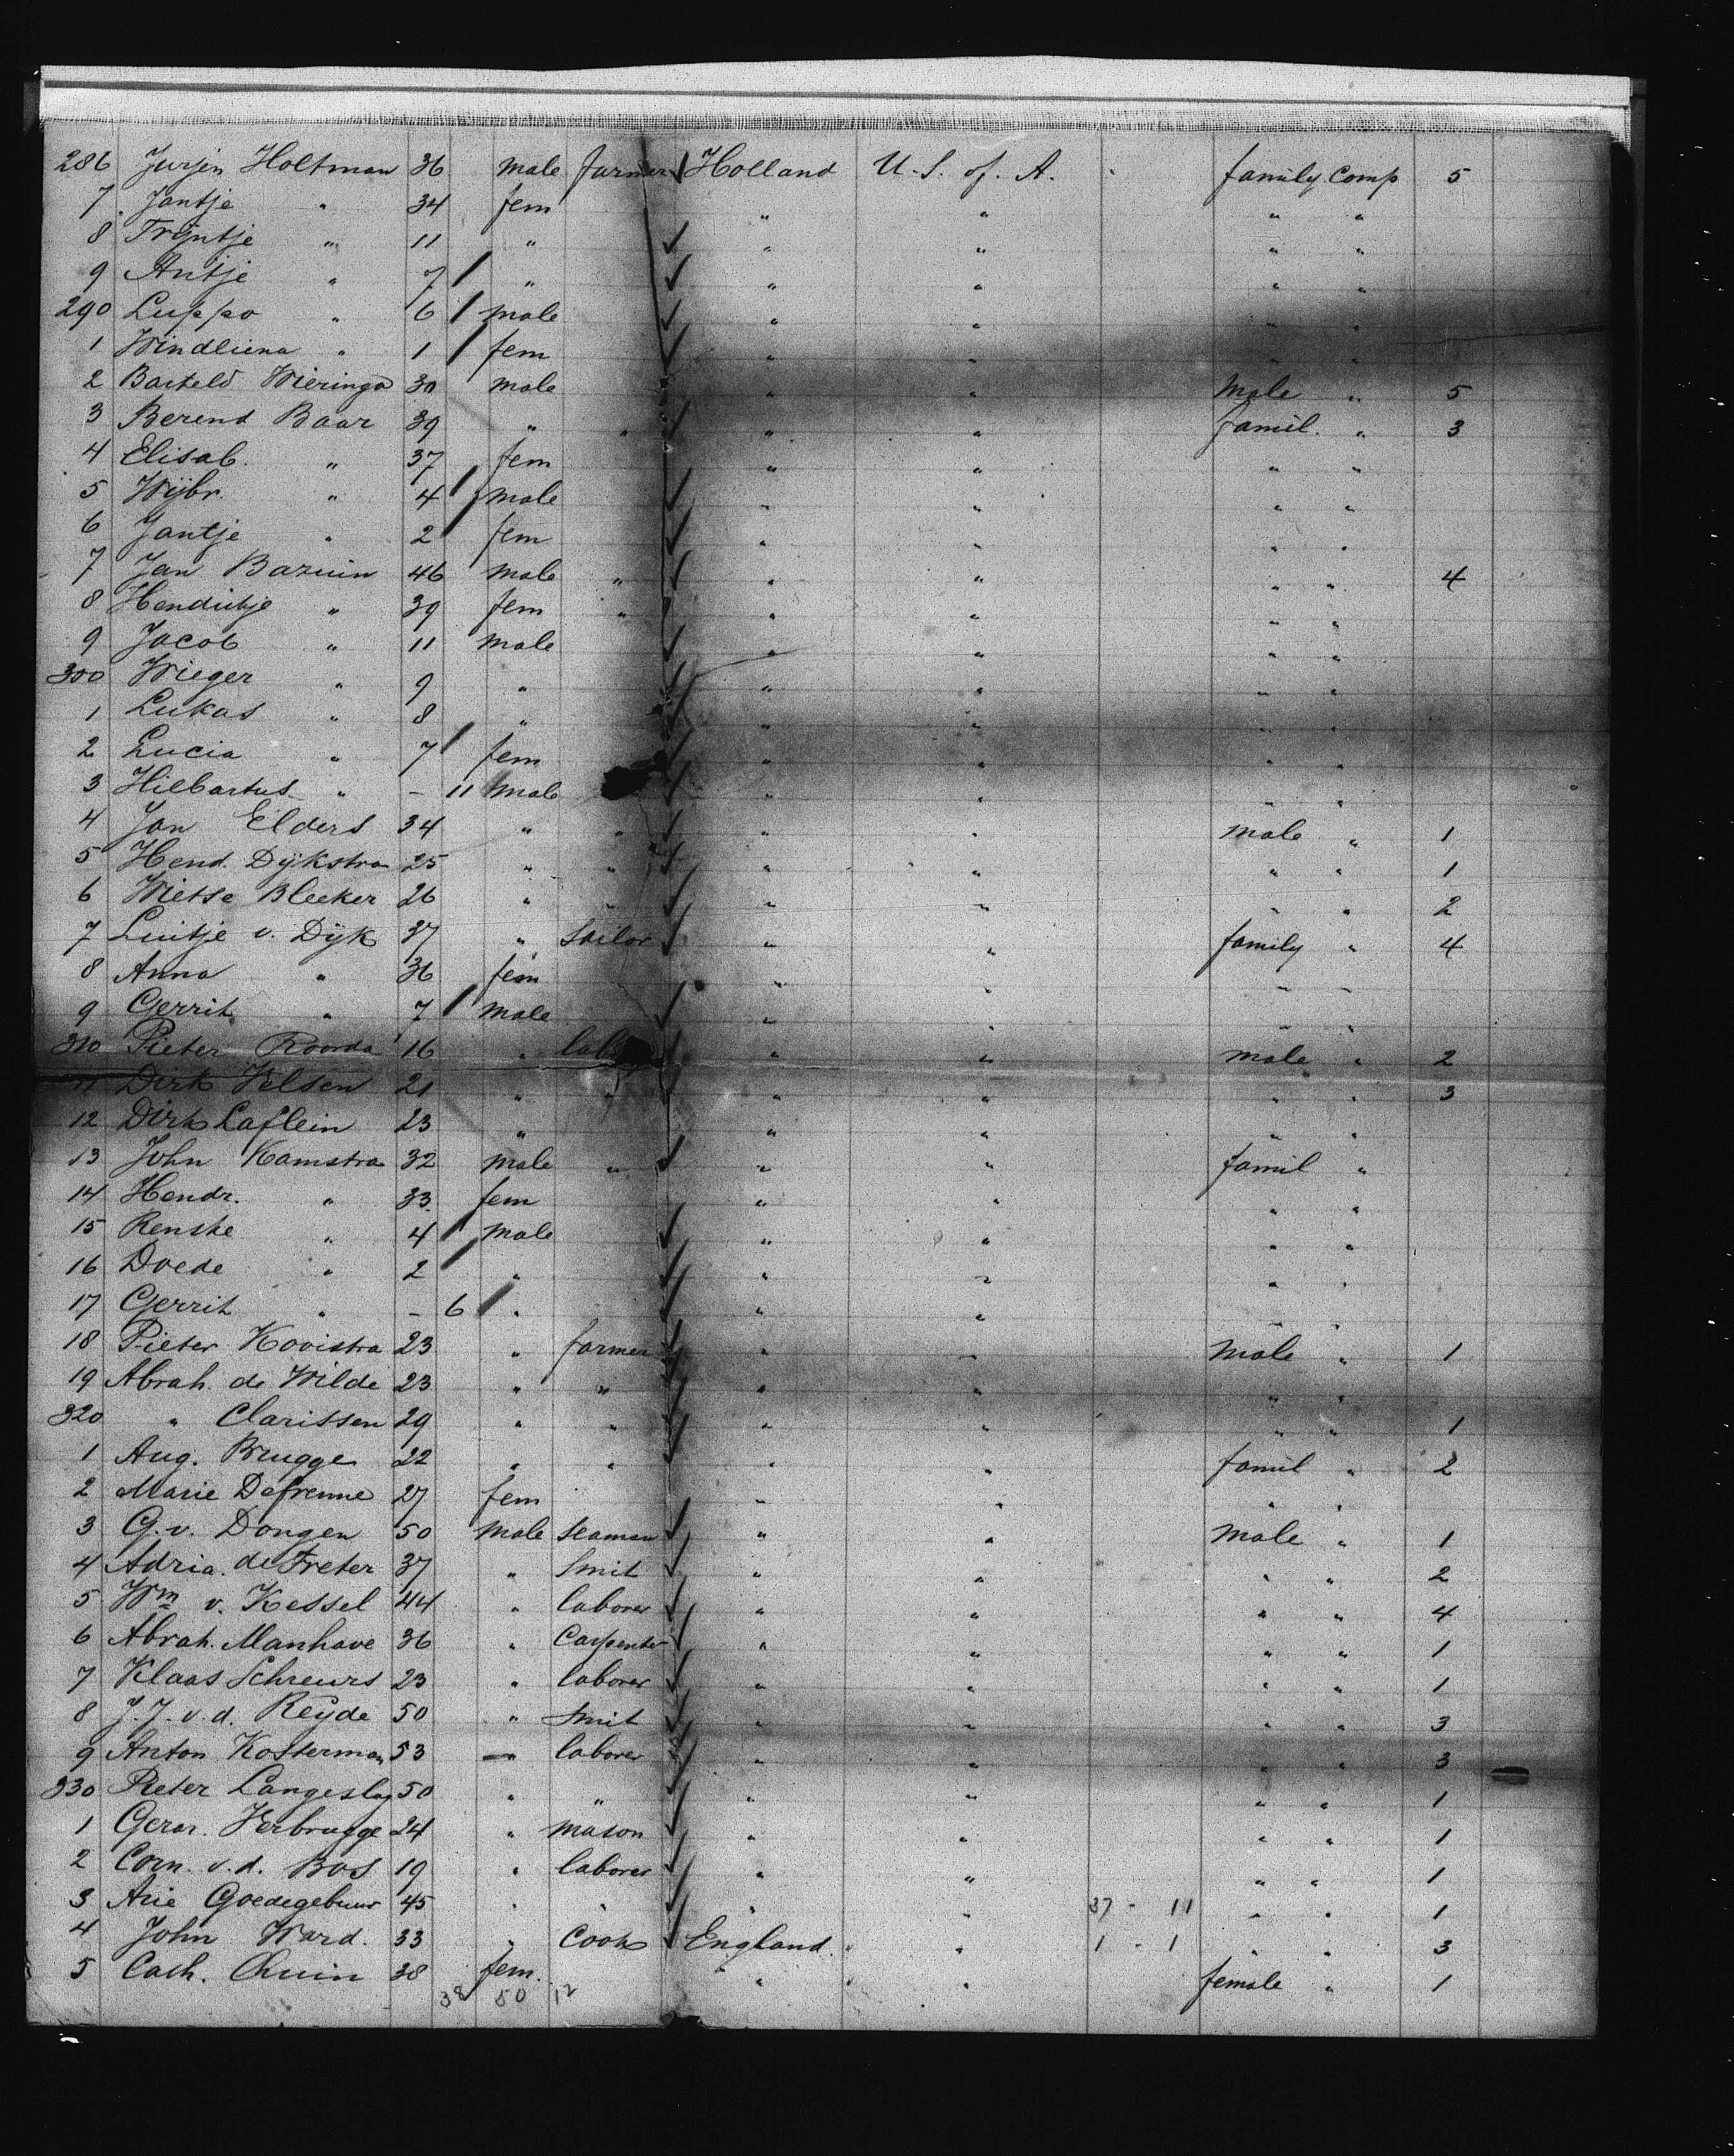 286 Jurjen Holtman 36 male farmer Holland U. S. of. A. family Comp 5
7 Jantje " 34 fem " " " "
8 Trijntje " 11 " " " " "
9 Antje " 7 " " " " "
290 Luppo " 6 male " " " "
1 Windliena " 1 fem " " " "
2 Barteld Wieringa 30 male " " Male " 5
3 Berend Baar 39 " " " " famil. " 3
4 Elisab. " 37 fem " " " "
5 Wijbr. " 4 male " " " "
6 Jantje " 2 fem " " " "
7 Jan Bazuin 46 male " " " " " 4
8 Hendikje " 39 fem " " " " "
9 Jacob " 11 male " " " "
300 Wieger " 9 " " " " "
1 Lukas " 8 " " " " "
2 Lucia " 7 fem " " " "
3 Hilbartus " - 11 male " " " "
4 Jan Elders 34 " " " " male " 1
5 Hend. Dijkstra 25 " " " " " " 1
6 Wietse Bleeker 26 " " " " " " 2
7 Luitje v. Dijk 37 " Sailor " " family " 4
8 Anna " 36 fem " " " "
9 Gerrit " 7 male " " " "
310 Pieter Roorda 16 " " " male " 2
11 Dirk Velsen 21 " " " " " " 3
12 Dirk Laflein 23 " " " " "
13 John Kamstra 32 male " " " famil "
14 Hendr. " 33 fem " " " "
15 Renske " 4 male " " " "
16 Doede " 2 " " " " "
17 Gerrit " - 6 " " " " "
18 Pieter Kooistra 23 " farmer " " Male " 1
19 Abrah. de Wilde 23 " " " " " "
320 " Clarissen 29 " " " " " " 1
1 Aug. Brugge 22 " " " " famil " 2
2 Marie Defrenne 27 fem " " " "
3 G. v. Dongen 50 male Seaman " " Male " 1
4 Adria. de Freter 37 " Smit " " " " 2
5 Wm v. Kessel 44 " laborer " " " " 4
6 Abrah. Manhave 36 " Carpenter " " " " 1
7 Klaas Schreurs 23 " laborer " " " " 1
8 J. J. v. d. Reijde 50 " Smit " " " " 3
9 Anton Kosterman 53 " laborer " " " " 3
330 Pieter Langeslag 50 " " " " " " 1
1 Gerar. Verbrugge 24 " mason " " " " 1
2 Corn. v. d. Bos 19 " laborer " " " " 1
3 Arie Goedegebuur 45 " " " " 37 - 11 " " 1
4 John Ward. 33 " Cook England. " 1 - 1 " " 3
5 Cath. Quin 38 fem. " " female " 1
38 50 12